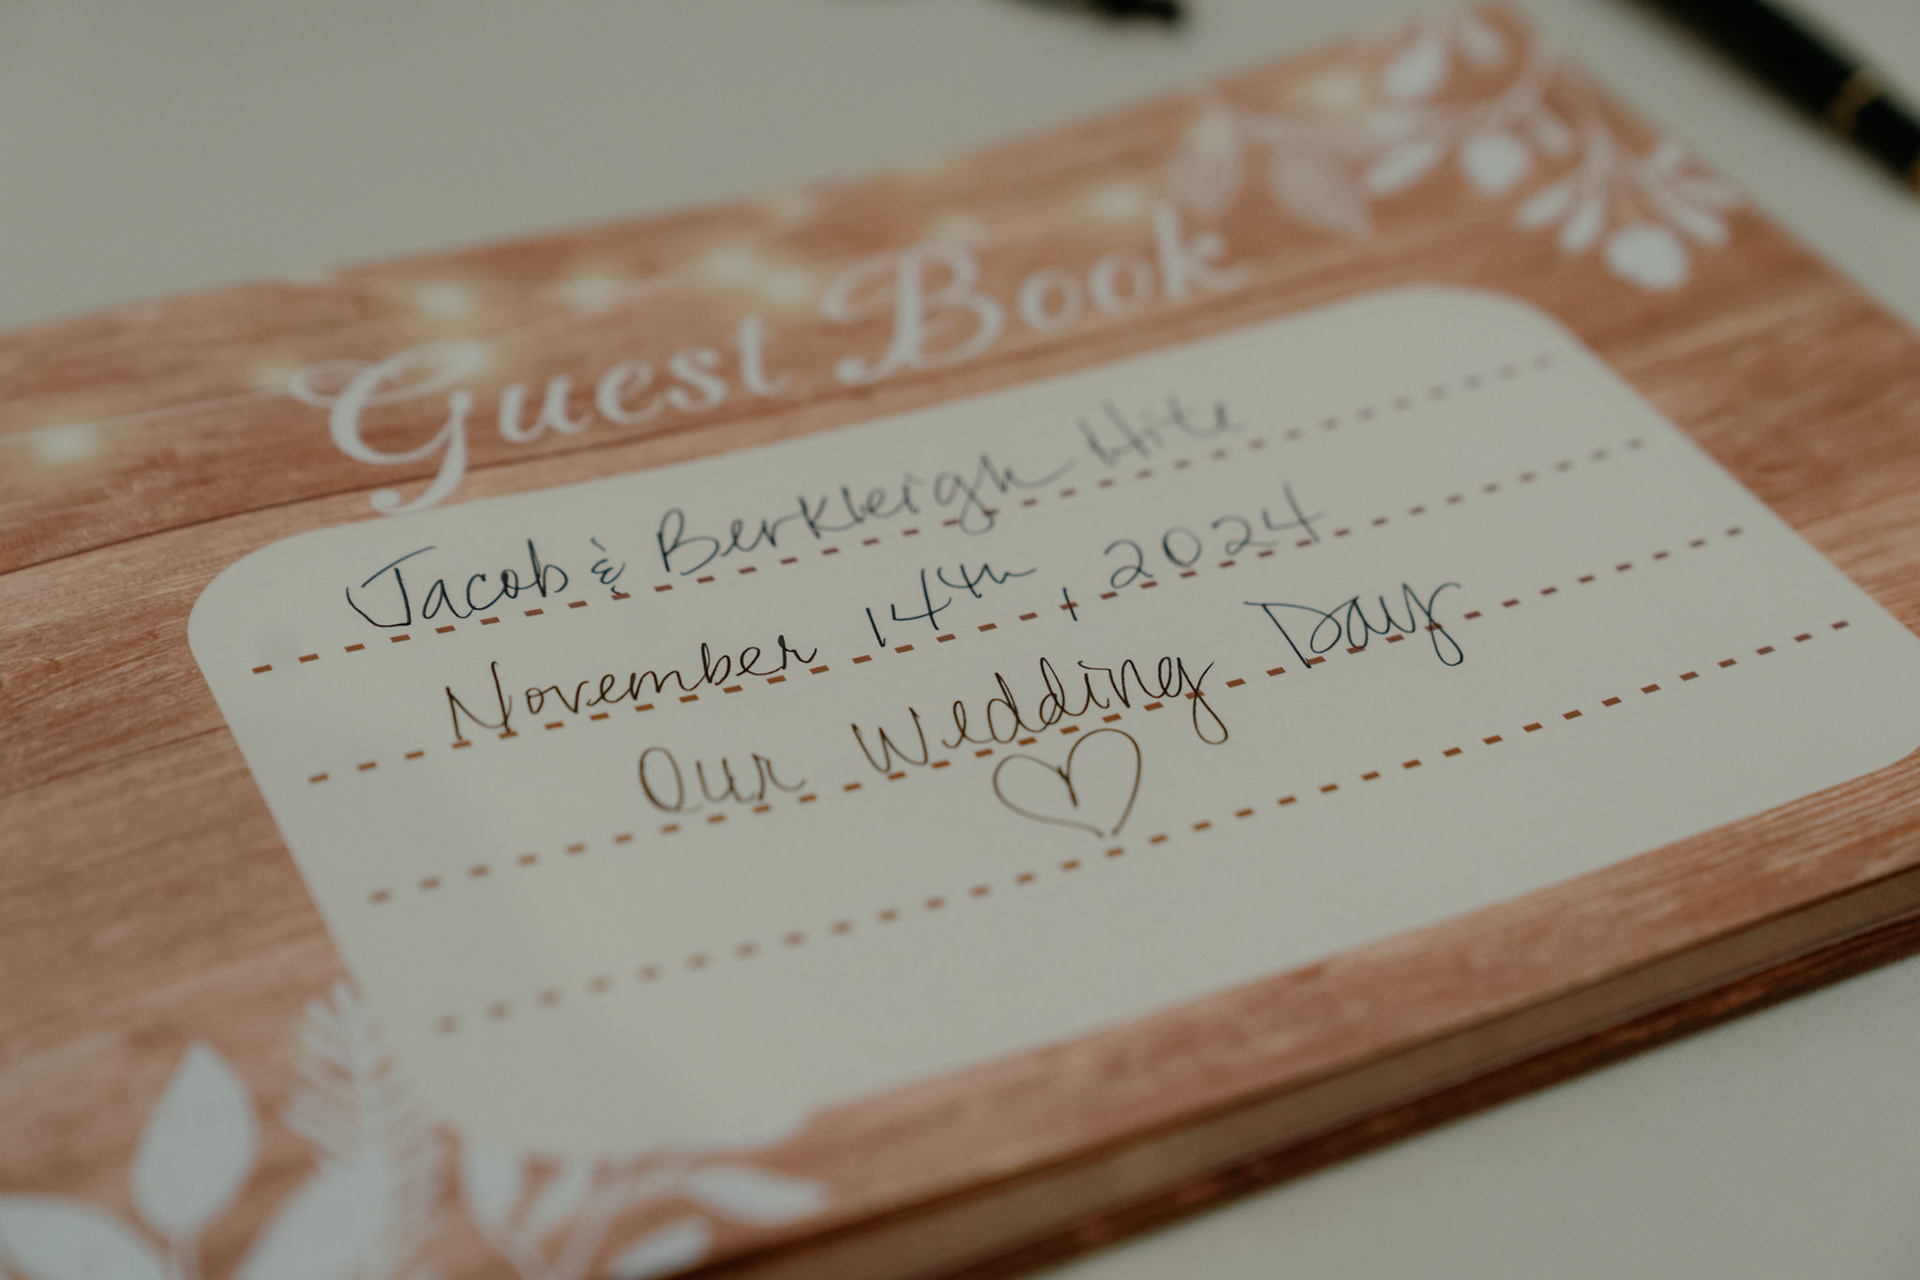 Guest Book
Jacob & Berkleigh Hite
November 14th, 2024
Our Wedding Day